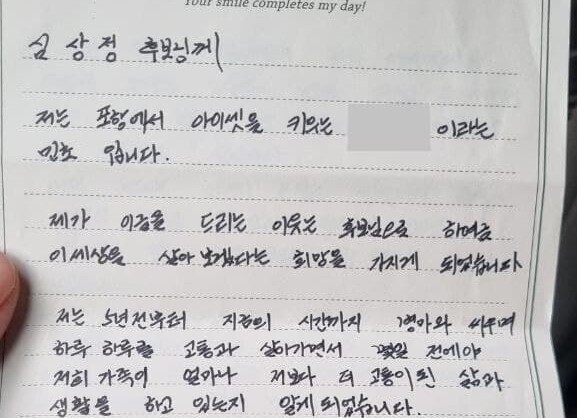 Your smile completes my day!
심 상 정 후보님께
저는 포항에서 아이셋을 키우는 이라는
민초 입니다.
제가 이글을 드리는 이웃는 후보님으로 하여금
이세상을 살아 보겠다는 희망을 가지게 되었습니다
저는 5년전부터 지금의 시간까지 병마와 싸우며
하루 하루를 고통과 살아가면서 몇일 전에야
저희 가족이 얼마나 저보다 더 고통이 된 삶과
생활을 하고 있는지 알게 되었습니다.